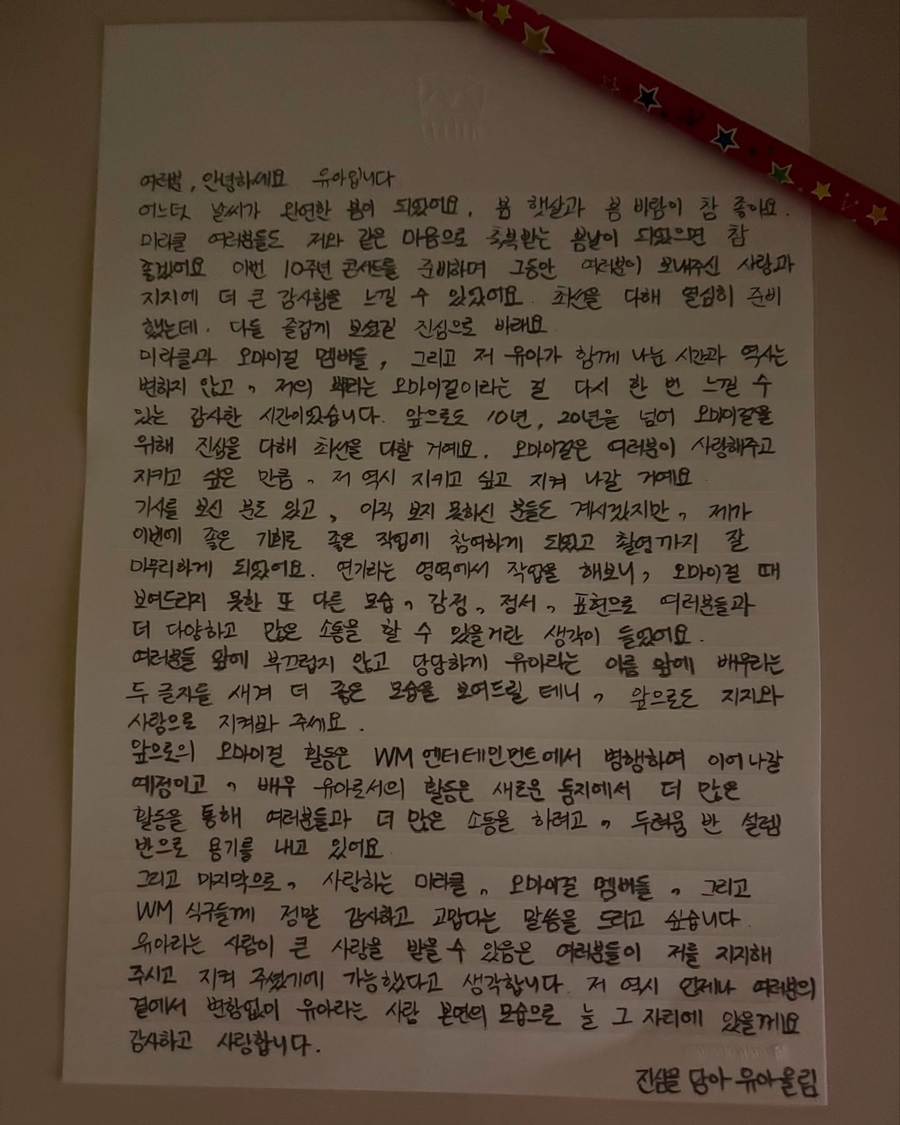 여러분, 안녕하세요 유아입니다
어느덧 날씨가 완연한 봄이 되었어요, 봄 햇살과 봄 바람이 참 좋아요.
미라클 여러분들도 저와 같은 마음으로 축복받는 봄날이 되었으면 참
좋겠어요 이번 10주년 콘서트를 준비하며 그동안 여러분이 보내주신 사랑과
지지에 더 큰 감사함을 느낄 수 있었어요. 최선을 다해 열심히 준비
했는데. 다들 즐겁게 보셨길 진심으로 바래요
미라클과 오마이걸 멤버들, 그리고 저 유아가 함께 나눈 시간과 역사는
변하지 않고, 저의 뿌리는 오마이걸이라는 걸 다시 한 번 느낄 수
있는 감사한 시간이었습니다. 앞으로도 10년, 20년을 넘어 오마이걸을
위해 진심을 다해 최선을 다할 거예요. 오마이걸은 여러분이 사랑해주고
지키고 싶은 만큼, 저 역시 지키고 싶고 지켜 나갈 거예요
기사를 보신 분도 있고, 아직 보지 못하신 분들도 계시겠지만, 제가
이번에 좋은 기회로 좋은 작업에 참여하게 되었고 촬영까지 잘
마무리하게 되었어요. 연기라는 영역에서 작업을 해보니, 오마이걸 때
보여드리지 못한 또 다른 모습, 감정, 정서, 표현으로 여러분들과
더 다양하고 많은 소통을 할 수 있을거란 생각이 들었어요.
여러분들 앞에 부끄럽지 않고 당당하게 유아라는 이름 앞에 배우라는
두 글자를 새겨 더 좋은 모습을 보여드릴 테니, 앞으로도 지지와
사랑으로 지켜봐 주세요.
앞으로의 오마이걸 활동은 WM 엔터테인먼트에서 병행하여 이어나갈
예정이고, 배우 유아로서의 활동은 새로운 둥지에서 더 많은
활동을 통해 여러분들과 더 많은 소통을 하려고, 두려움 반 설렘
반으로 용기를 내고 있어요.
그리고 마지막으로, 사랑하는 미라클, 오마이걸 멤버들, 그리고
WM 식구들께 정말 감사하고 고맙다는 말씀을 드리고 싶습니다.
유아라는 사람이 큰 사랑을 받을 수 있음은 여러분들이 저를 지지해
주시고 지켜 주셨기에 가능했다고 생각합니다. 저 역시 언제나 여러분의
곁에서 변함없이 유아라는 사람 본연의 모습으로 늘 그 자리에 있을게요
감사하고 사랑합니다.
진심을 담아 유아올림